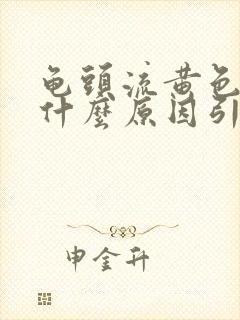 龟頭流黄色
什麼原因引
申金升